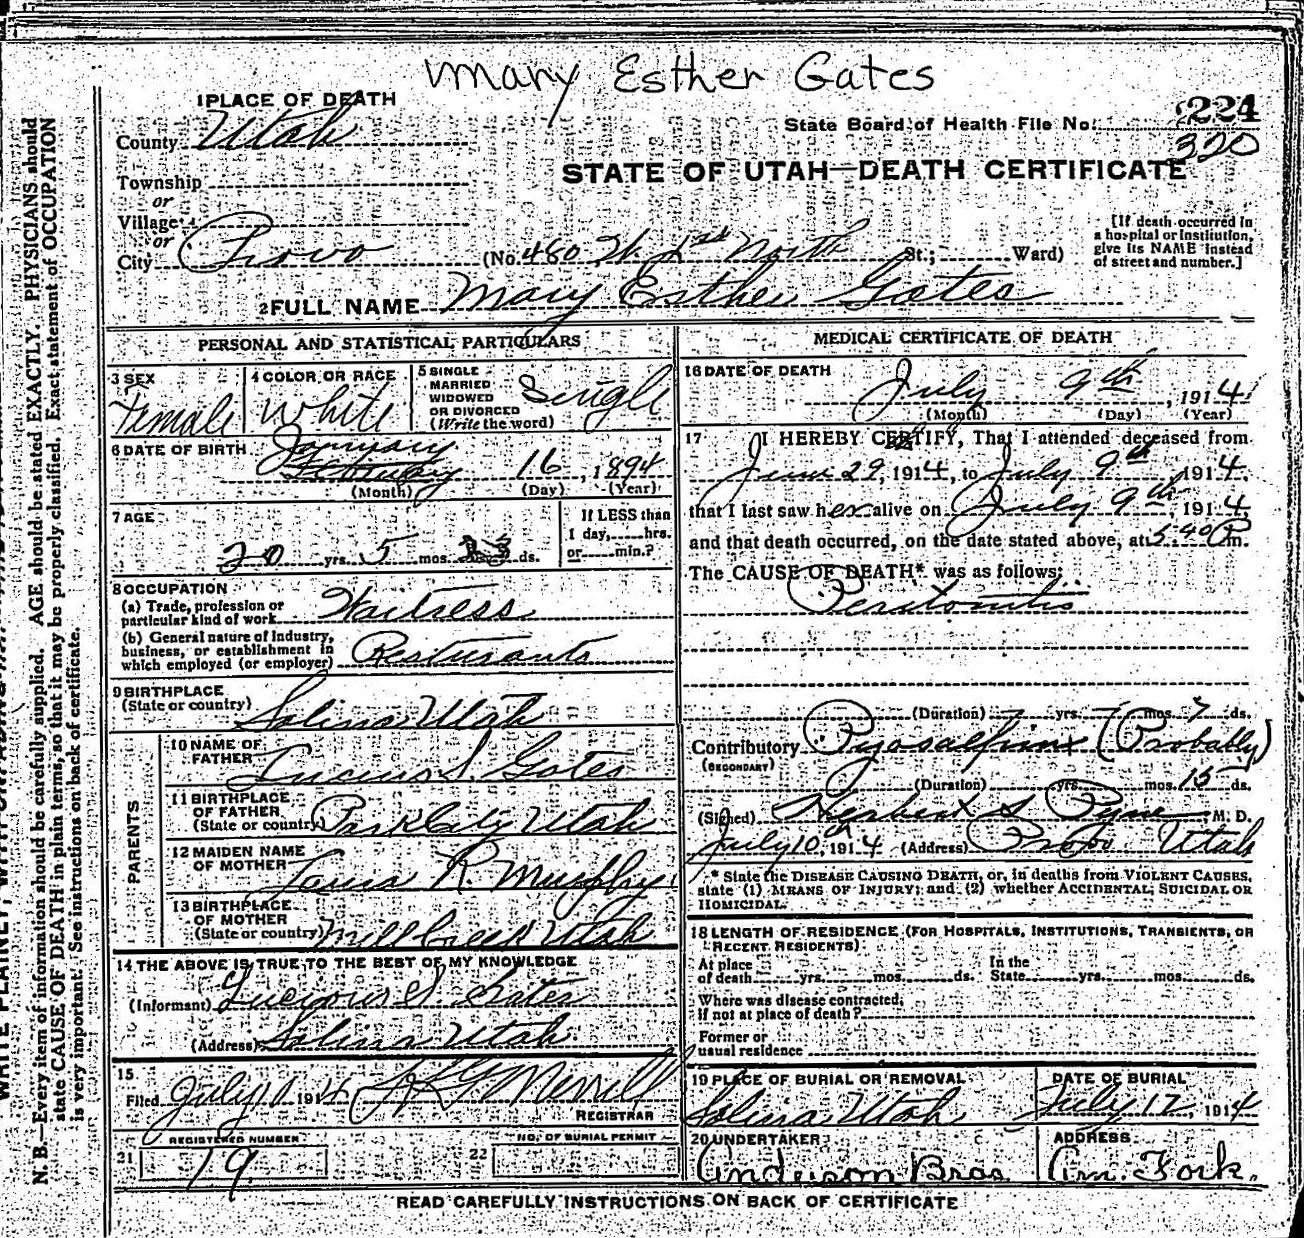 Mary Esther Gates
1 PLACE OF DEATH
County Utah
State Board of Health File No. 224
320
STATE OF UTAH—DEATH CERTIFICATE
Township
or
Village
or
City Provo (No. 480 W. 1st North St.; Ward)
[If death occurred in
a hospital or institution,
give its NAME instead
of street and number.]
2 FULL NAME Mary Esther Gates
PERSONAL AND STATISTICAL PARTICULARS
3 SEX
Female
4 COLOR OR RACE
White
5 SINGLE
MARRIED
WIDOWED
OR DIVORCED
(Write the word)
Single
6 DATE OF BIRTH
January
February 16, 1894
(Month) (Day) (Year)
7 AGE
20 yrs. 5 mos. 23 ds.
If LESS than
1 day, hrs.
or min.?
8 OCCUPATION
(a) Trade, profession or
particular kind of work Waitress
(b) General nature of Industry,
business, or establishment in
which employed (or employer) Resturants
9 BIRTHPLACE
(State or country) Salina Utah
PARENTS
10 NAME OF
FATHER Lucius S. Gates
11 BIRTHPLACE
OF FATHER
(State or country) Park City Utah
12 MAIDEN NAME
OF MOTHER Laura R. Murphy
13 BIRTHPLACE
OF MOTHER
(State or country) Mill Creek Utah
14 THE ABOVE IS TRUE TO THE BEST OF MY KNOWLEDGE
(Informant) Lucious S Gates
(Address) Salina Utah
15
Filed July 10 1914 Merrill
REGISTRAR
REGISTERED NUMBER
21 19.
NO. OF BURIAL PERMIT
22
MEDICAL CERTIFICATE OF DEATH
16 DATE OF DEATH
July 9th, 1914
(Month) (Day) (Year)
17 I HEREBY CERTIFY, That I attended deceased from
June 29, 1914, to July 9th 1914,
that I last saw her alive on July 9th, 1914,
and that death occurred, on the date stated above, at 5:40 P m.
The CAUSE OF DEATH* was as follows:
Peritonitis
(Duration) yrs. mos. 7 ds.
Contributory Pyosalpinx (Probably)
(SECONDARY)
(Duration) yrs. mos. 15 ds.
(Signed) Herbert S Pyne M. D.
July 10th, 1914 (Address) Provo Utah
* State the DISEASE CAUSING DEATH, or, in deaths from VIOLENT CAUSES,
state (1) MEANS OF INJURY; and (2) whether ACCIDENTAL, SUICIDAL OR
HOMICIDAL.
18 LENGTH OF RESIDENCE (FOR HOSPITALS, INSTITUTIONS, TRANSIENTS, OR
RECENT RESIDENTS)
At place
of death yrs. mos. ds.
In the
State yrs. mos. ds.
Where was disease contracted,
if not at place of death?
Former or
usual residence
19 PLACE OF BURIAL OR REMOVAL
Salina Utah
DATE OF BURIAL
July 12, 1914
20 UNDERTAKER
Anderson Bros.
ADDRESS
Am. Fork.
READ CAREFULLY INSTRUCTIONS ON BACK OF CERTIFICATE
N. B.—Every item of information should be carefully supplied. AGE should be stated EXACTLY. PHYSICIANS should
state CAUSE OF DEATH in plain terms, so that it may be properly classified. Exact statement of OCCUPATION
is very important. See instructions on back of certificate.